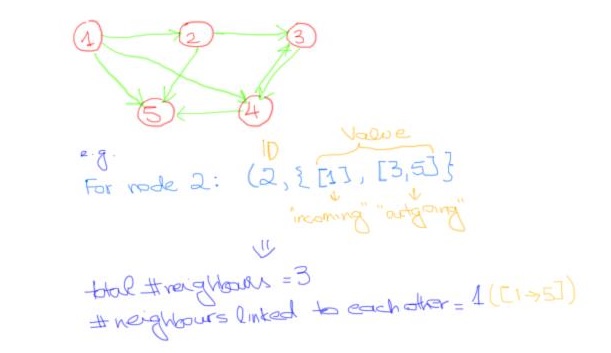 1 2 3
5 4
e.g. ID Value
For node 2: (2, {[1], [3,5]}
"incoming" "outgoing"
total #neighbours = 3
#neighbours linked to each other = 1 ([1→5])